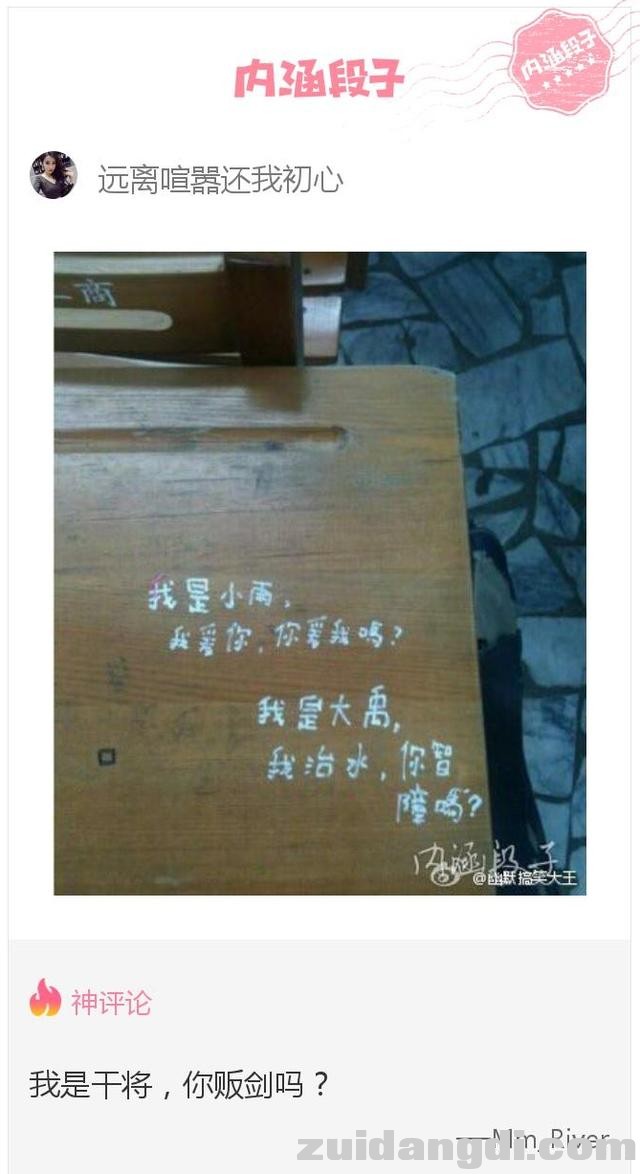 内涵段子
内涵段子
远离喧嚣还我初心
商
我是小雨，
我爱你，你爱我嗎？
我是大禹，
我治水，你智
障嗎？
内涵段子
@幽默搞笑大王
神评论
我是干将，你贩剑吗？
——Mm_River
zuidangdi.com